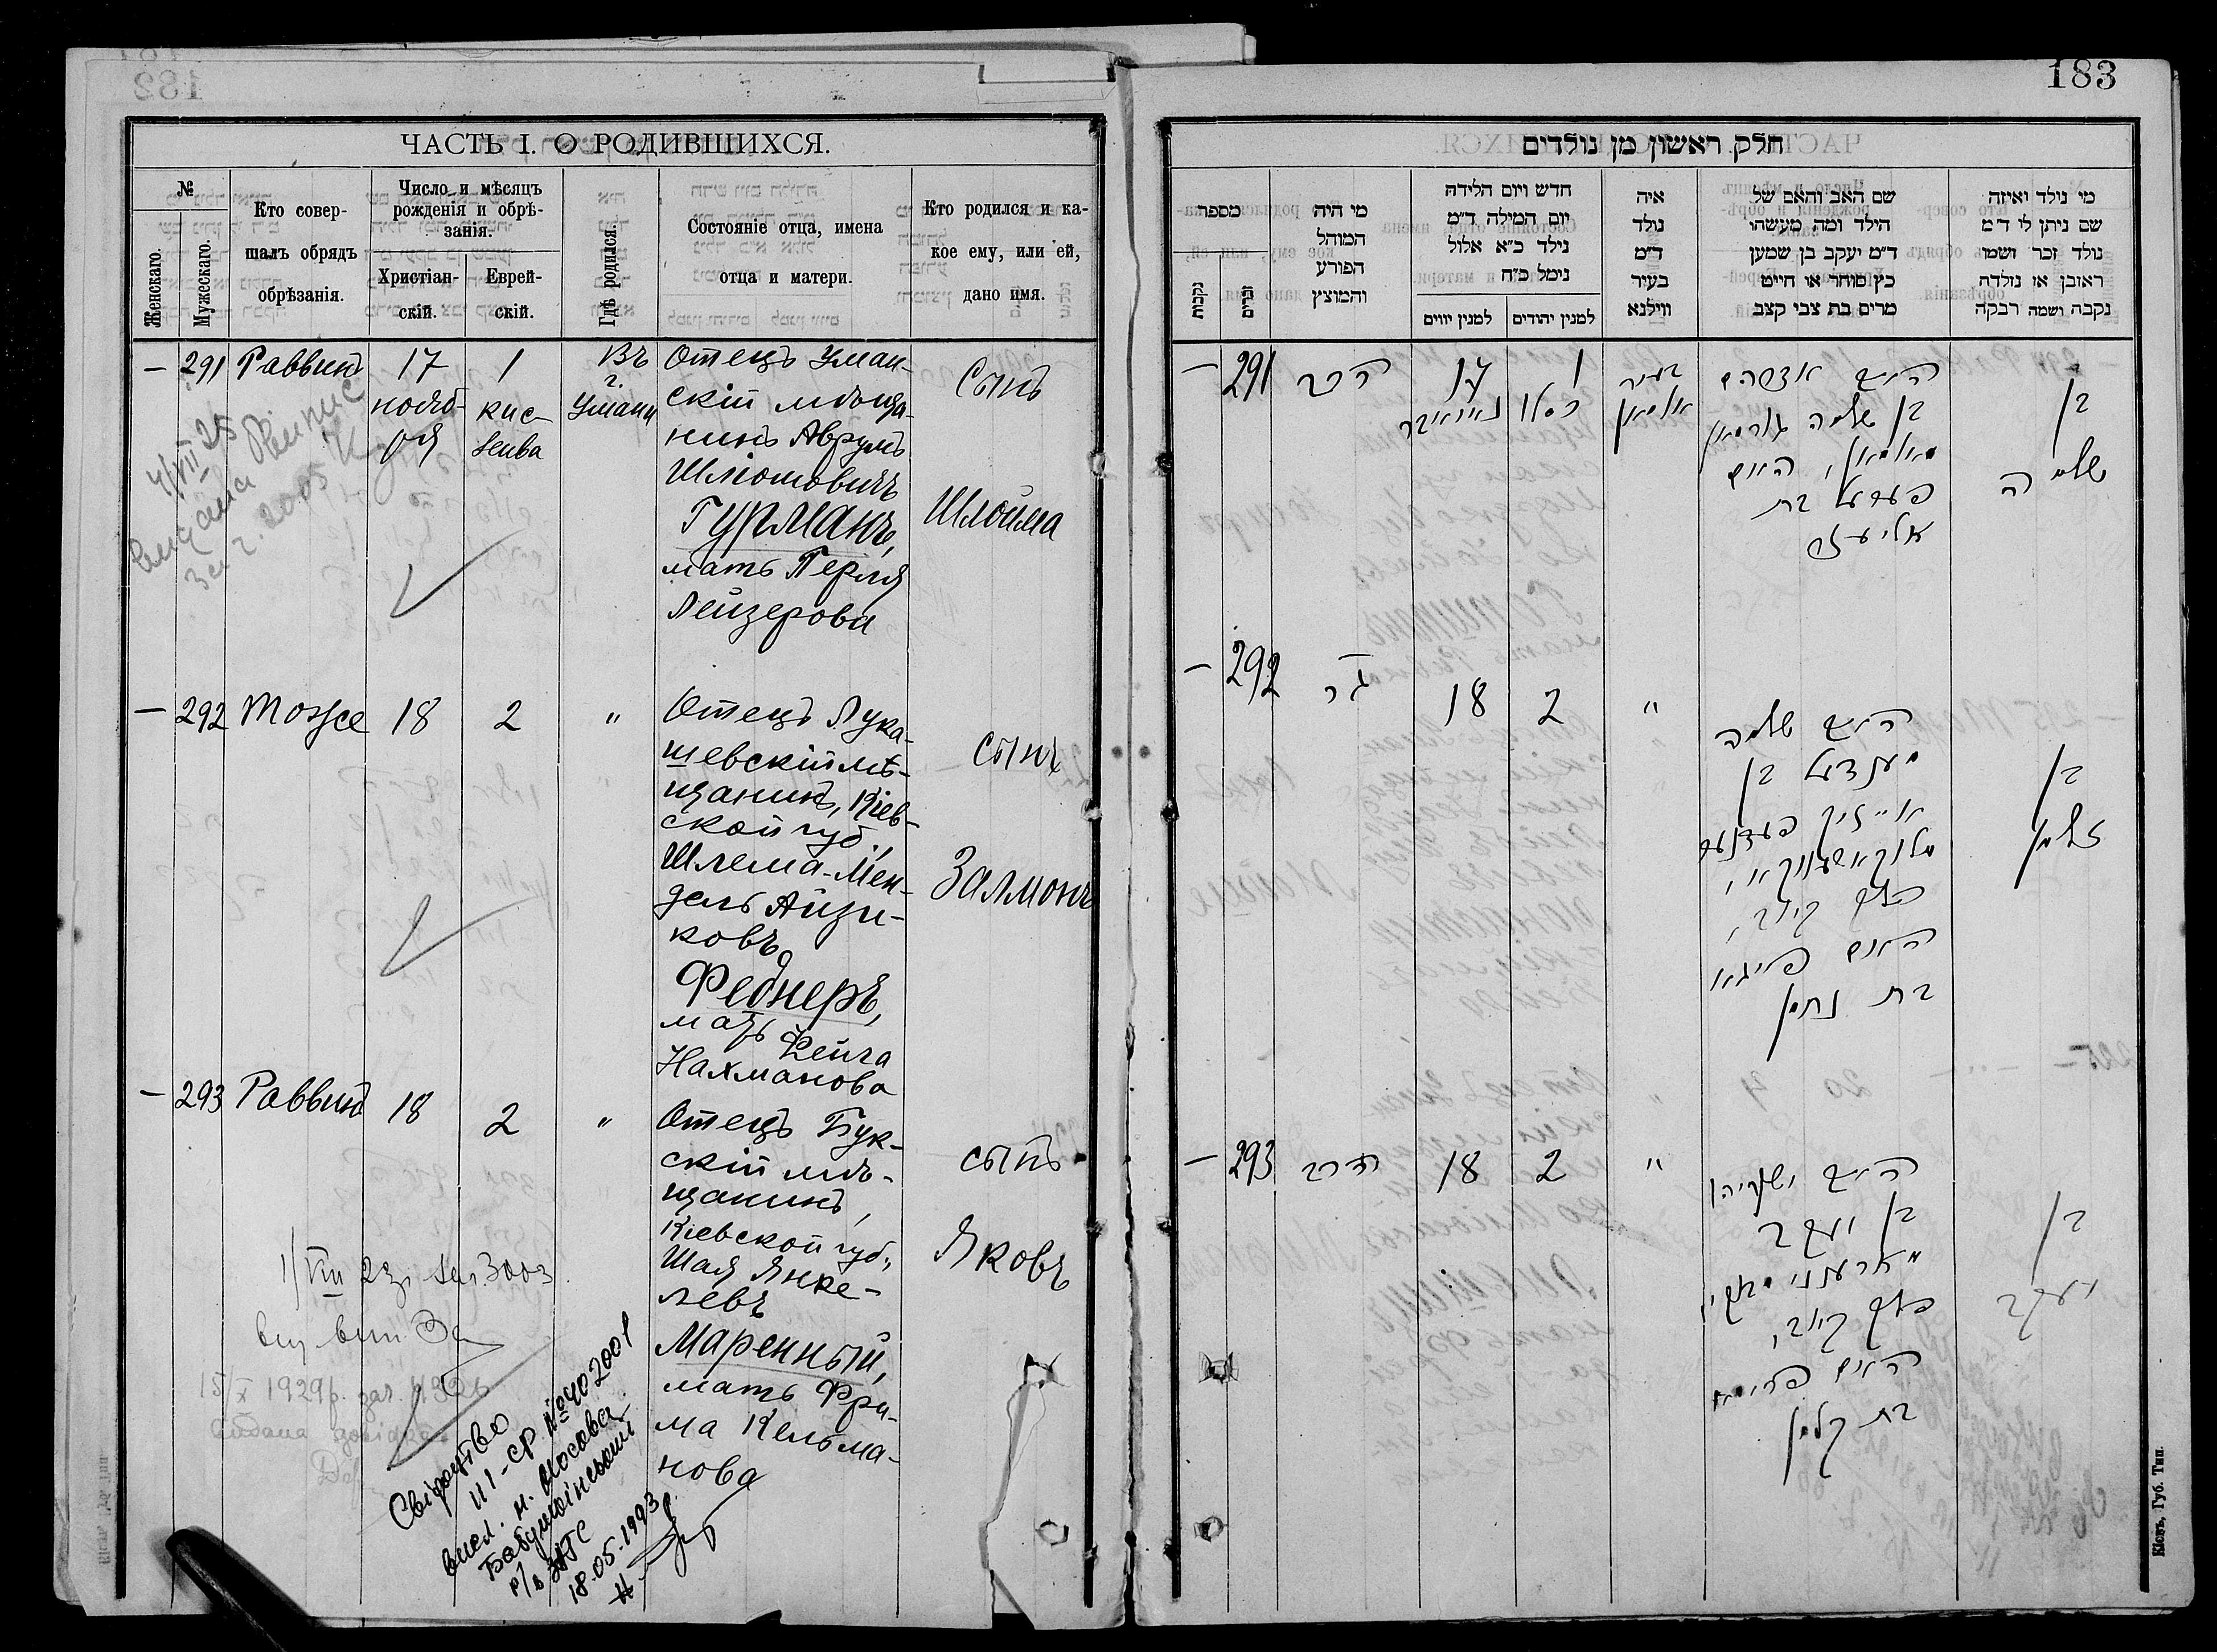 183
ЧАСТЬ I. О РОДИВШИХСЯ.
№
Женскаго.
Мужескаго.
Кто совер-
шалъ обрядъ
обрѣзанія.
Число и мѣсяцъ
рожденія и обрѣ-
занія.
Христіан-
скій.
Еврей-
скій.
Гдѣ родился.
Состояніе отца, имена
отца и матери.
Кто родился и ка-
кое ему, или ей,
дано имя.
— 291 Раввинъ 17 1 Въ
нояб- кис- г.
ря лева Умани
Отецъ Уман-
скій мѣща-
нинъ Аврумъ
Шліомовичъ
Гурманъ,
мать Перля
Лейзерова
Сынъ
Шлойма
4/VII 25
— 292 Мошко 18 2 "
Отецъ Лука-
шевскій мѣ-
щанинъ, Кіев-
ской губ.,
Шлема-Мен-
дель Айзи-
ковъ
Феднеръ,
мать Фейга
Нахманова
сынъ
Залмонъ
— 293 Раввинъ 18 2 "
Отецъ Бук-
скій мѣ-
щанинъ,
Кіевской губ.,
Шая Янке-
левъ
Маренный,
мать Фри-
ма Кельма-
нова
сынъ
Яковъ
1/VIII 23
15/X 1929р.
Свідоцтво
III-СР №402001
18.05.1993р.
חלק ראשון מן נולדים
מספר
נקבות
זכרים
מי היה
המוהל
הפורע
והמוצץ
חדש ויום הלידה
יום המילה ד״מ
נילד כ״א אלול
נימל כ״ח
למנין יווים
למנין יהודים
איה
נולד
ד״מ
בעיר
ווילנא
שם האב והאם של
הילד ומה מעשהו
ד״מ יעקב בן שמען
כץ סוחר או חייט
מרים בת צבי קצב
מי נולד ואיזה
שם ניתן לו ד״מ
נולד זכר ושמו
ראובן או נולדה
נקבה ושמה רבקה
— 291 הרב 17 1 בעיר
כסלו אומאן
האב אברהם
בן שלמה גורמאן
האם
פערל בת
אליעזר
בן
שלמה
— 292 18 2 "
האב שלמה
מענדעל בן
אייזיק פעדנער
פלך קיוב,
האם פייגא
בת נחמן
בן
זלמן
— 293 הרב 18 2 "
האב ישעיהו
בן יעקב
פלך קיוב,
האם פרימא
בת קלמן
בן
יעקב
Кіевъ, Губ. Тип.